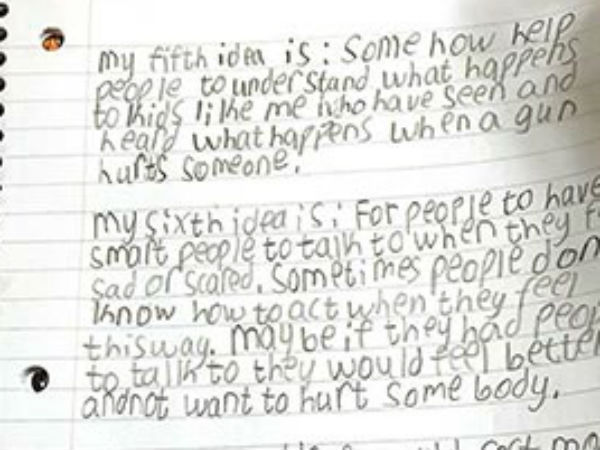 my fifth idea is: Some how help
people to understand what happens
to kids like me who have seen and
heard what happens when a gun
hurts someone.
my sixth idea is: For people to have
smart people to talk to when they
sad or scared. Sometimes people don
know how to act when they feel
this way. Maybe if they had
to talk to they would feel better
and not want to hurt some body.